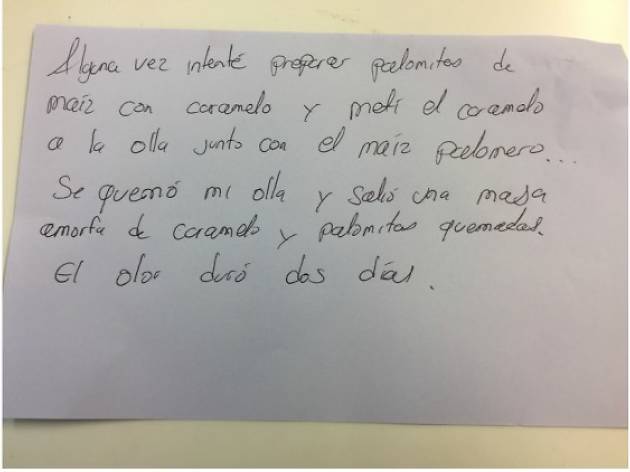 Alguna vez intenté preparar palomitas de
maíz con caramelo y metí el caramelo
a la olla junto con el maíz palomero...
Se quemó mi olla y salió una masa
amorfa de caramelo y palomitas quemadas.
El olor duró dos días.